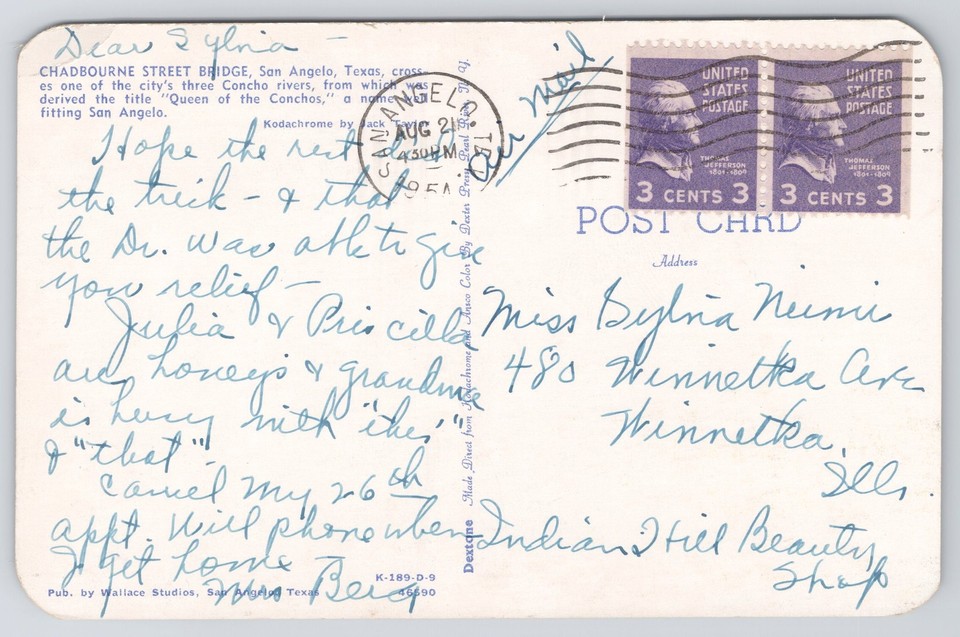 Dear Sylvia -
CHADBOURNE STREET BRIDGE, San Angelo, Texas, cross-
es one of the city's three Concho rivers, from which was
derived the title "Queen of the Conchos," a name well
fitting San Angelo.
Kodachrome by Jack Taylor
Hope the rest did
the trick - & that
the Dr. was able to give
you relief -
Julia & Priscilla
are honeys & grandma
is busy with "this"
& "that"
Cancel my 26th
appt. Will phone when
I get home -
Mrs Berg
K-189-D-9
Pub. by Wallace Studios, San Angelo, Texas 46590
Dextone Made Direct from Kodachrome and Ansco Color By Dexter Press, Pearl River, N. Y.
SAN ANGELO, TEX
AUG 21
430 PM
Air Mail
UNITED
STATES
POSTAGE
THOMAS
JEFFERSON
1801-1809
3 CENTS 3
UNITED
STATES
POSTAGE
THOMAS
JEFFERSON
1801-1809
3 CENTS 3
POST CARD
Address
Miss Sylvia Niemi
480 Winnetka Ave
Winnetka,
Ills.
Indian Hill Beauty
Shop